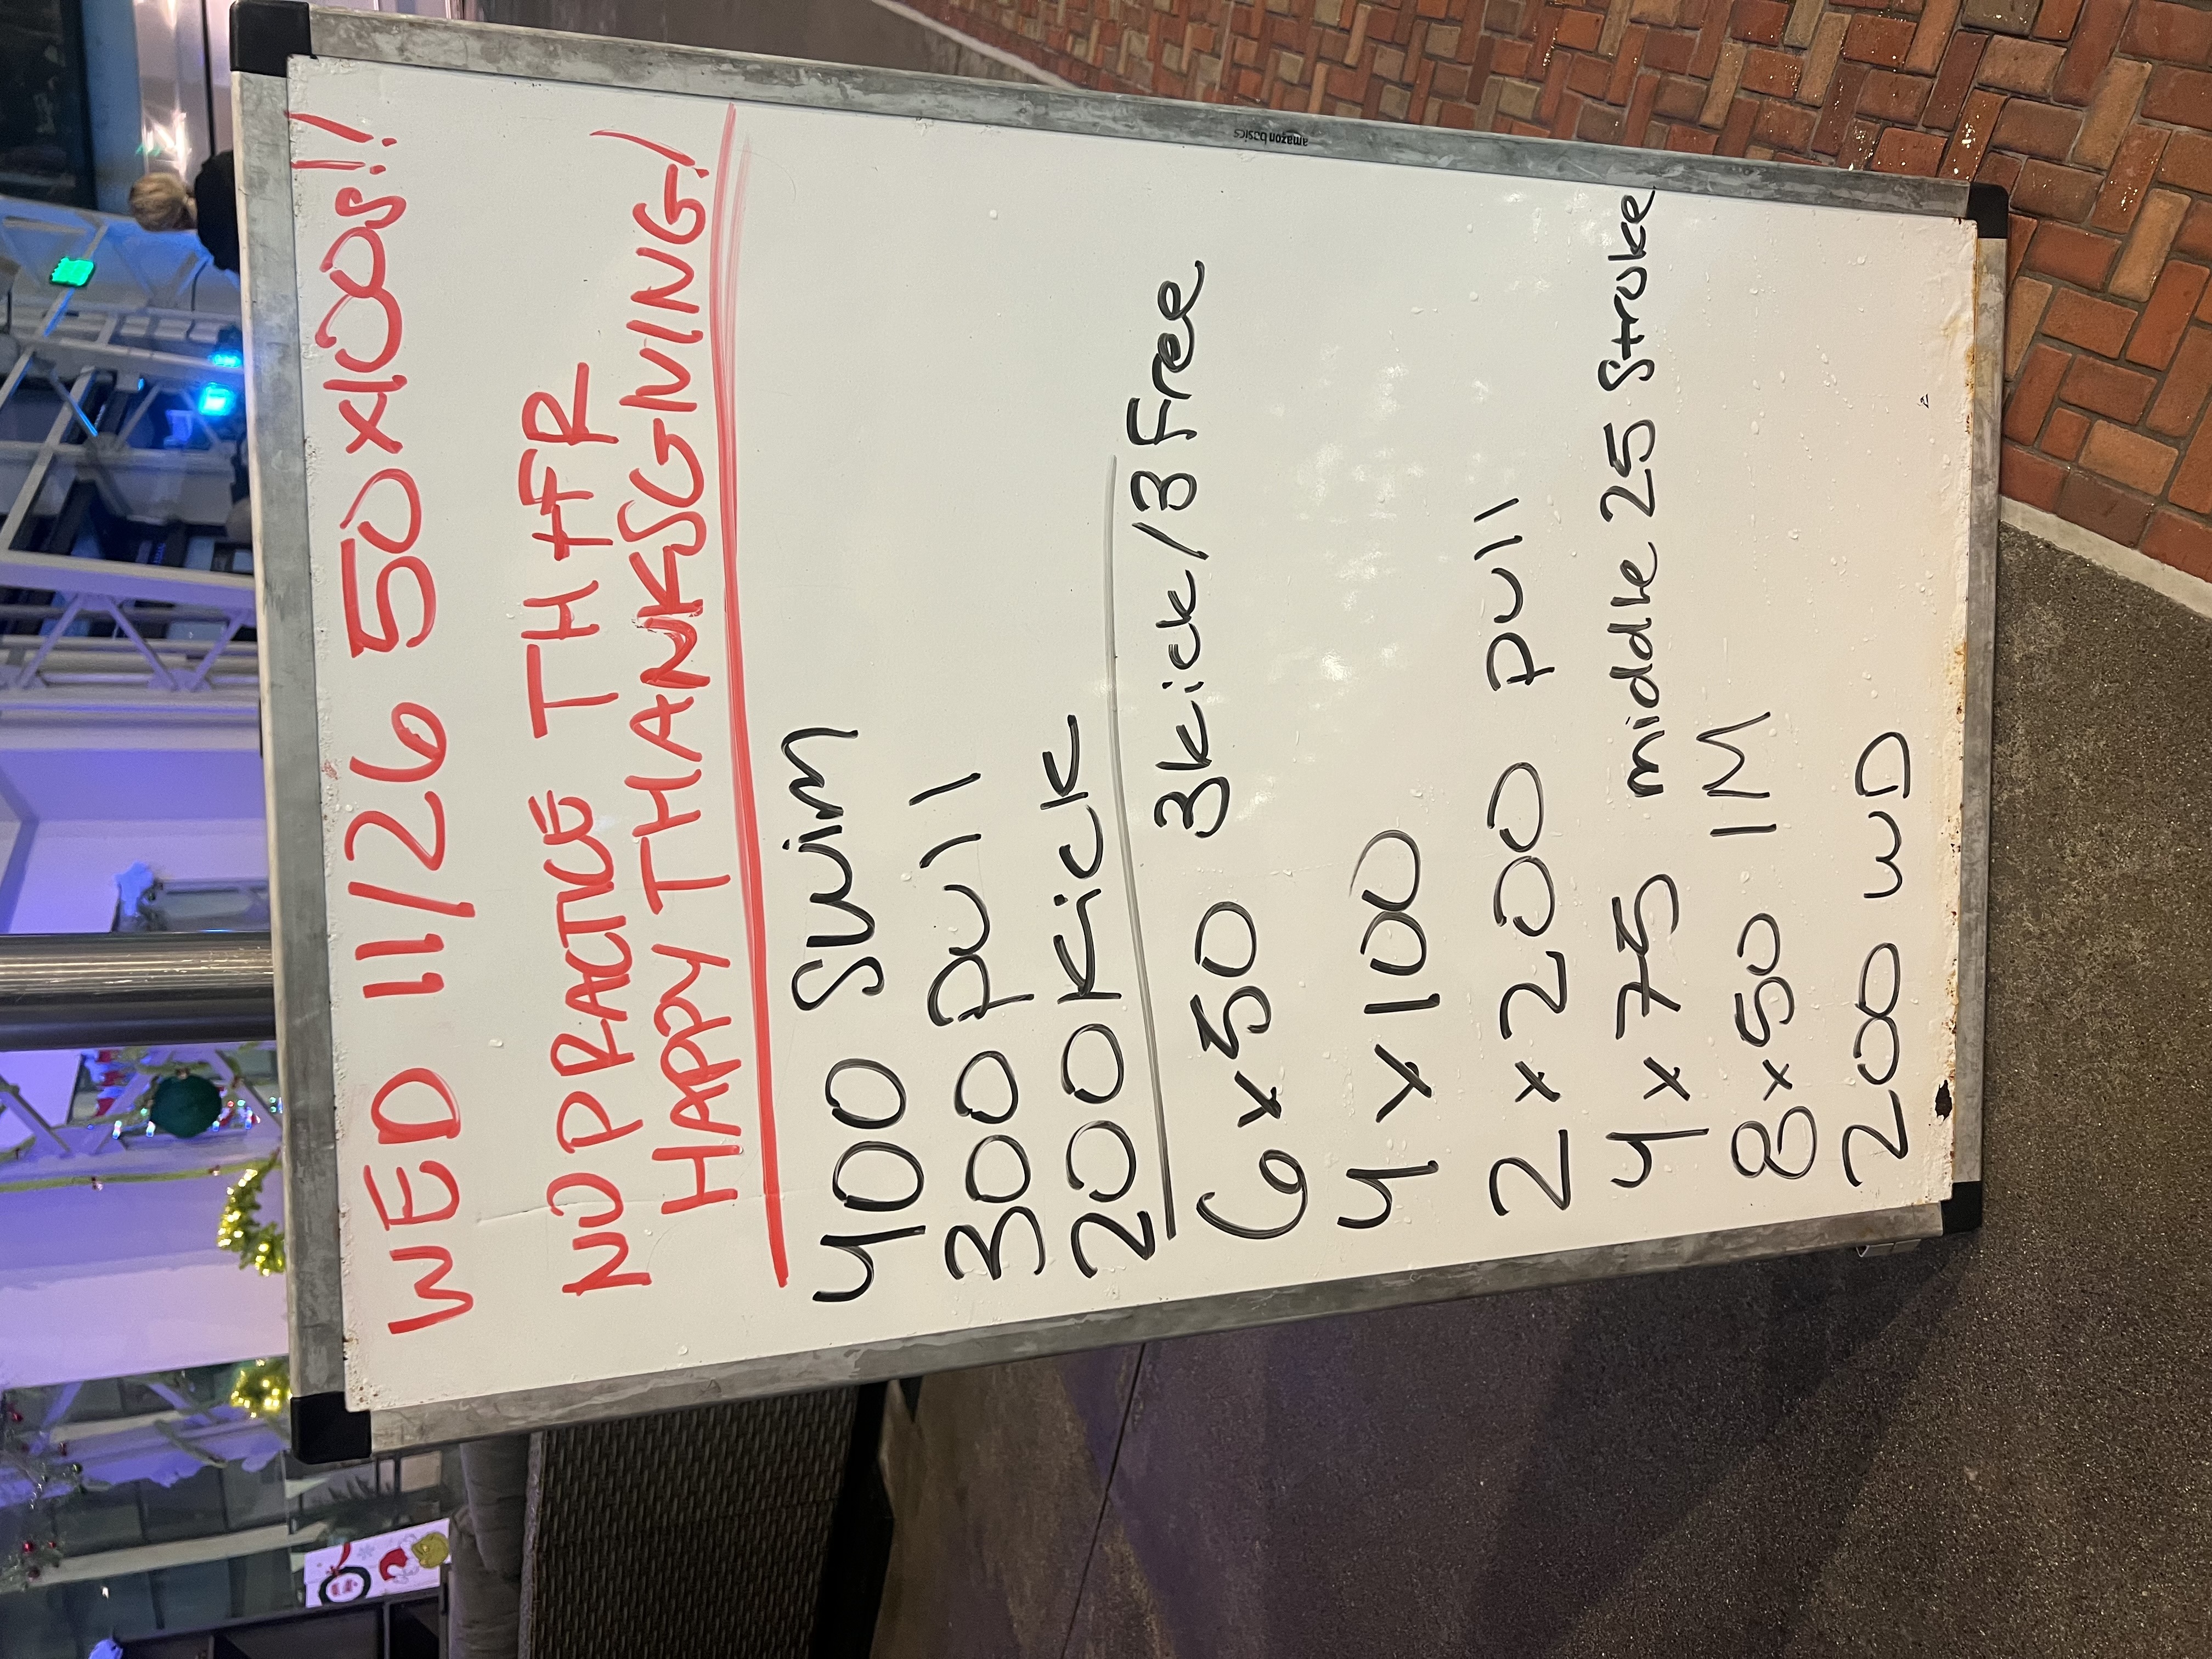 WED 11/26 50x100s!!
NO PRACTICE TH+FR
HAPPY THANKSGIVING!
400 Swim
300 pull
200 Kick
6 x 50 3kick/3Free
4 x 100
2 x 200 pull
4 x 75 middle 25 Stroke
8 x 50 IM
200 WD
amazon basics